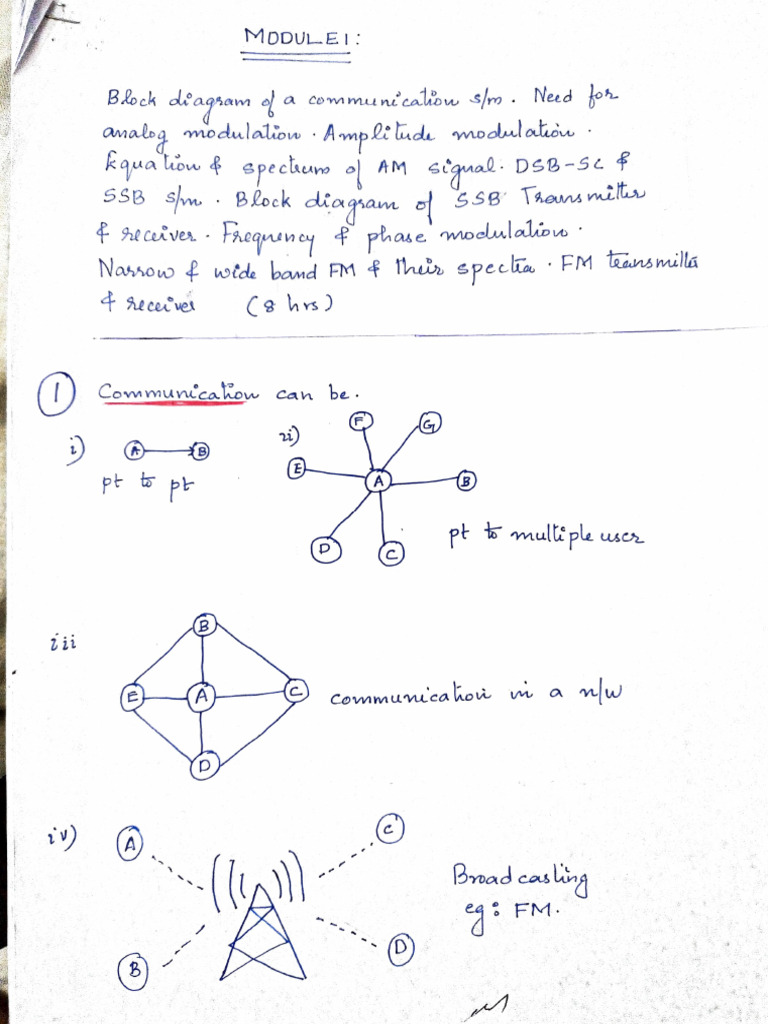 MODULE 1:
Block diagram of a communication s/m. Need for
analog modulation. Amplitude modulation.
Equation & spectrum of AM signal. DSB-SC &
SSB s/m. Block diagram of SSB Transmitter
& receiver. Frequency & phase modulation.
Narrow & wide band FM & their spectra. FM transmitter
& receiver (8 hrs)
1 Communication can be.
i) A B
pt to pt
ii) F G
E A B
D C
pt to multiple user
iii
B
E A C
D
communication in a n/w
iv) A C
B D
Broadcasting
eg: FM.